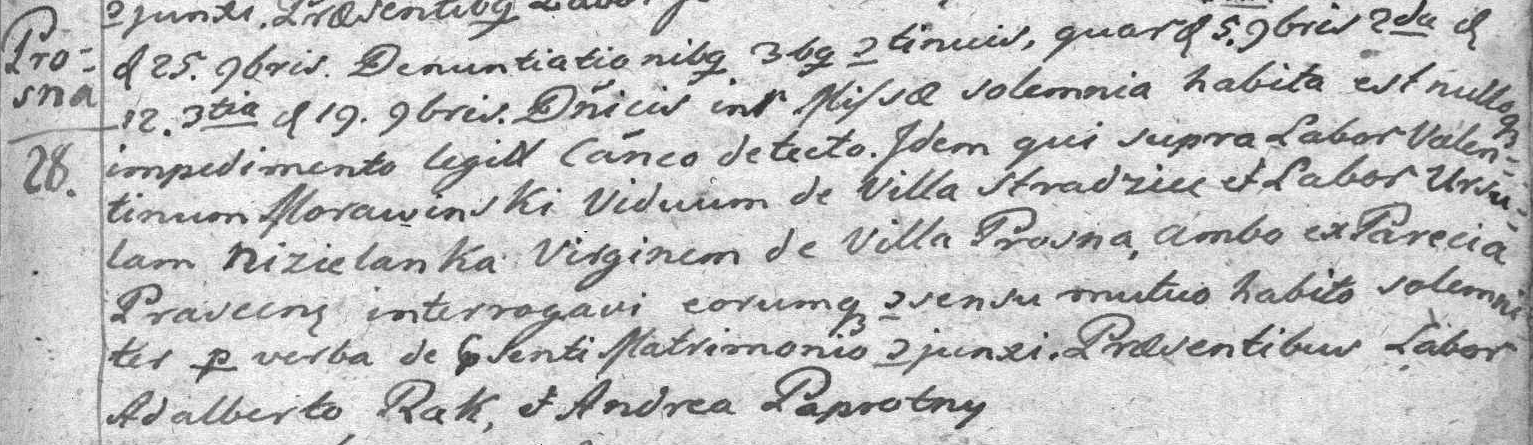 ɔjunxi. Præsentibq Labor
Pro-
sna
28.
d 25. 9bris. Denuntiationibq 3bq ɔtinuis, quar d 5. 9bris 2da d
12. 3tia d 19. 9bris. Dn̄icis intr Missæ solemnia habita est nulloq
impedimento legitt Cān̄co detecto. Idem qui supra Labor Valen-
tinum Morawinski Viduum de Villa Stradziec et Labor Ursu-
lam Nizielanka Virginem de Villa Prosna, ambo ex Parecia
Praseens interrogavi eorumq ɔsensu mutuo habito solemni
ter p verba de psenti Matrimonio ɔjunxi. Præsentibus Labor
Adalberto Rak, et Andrea Paprotny